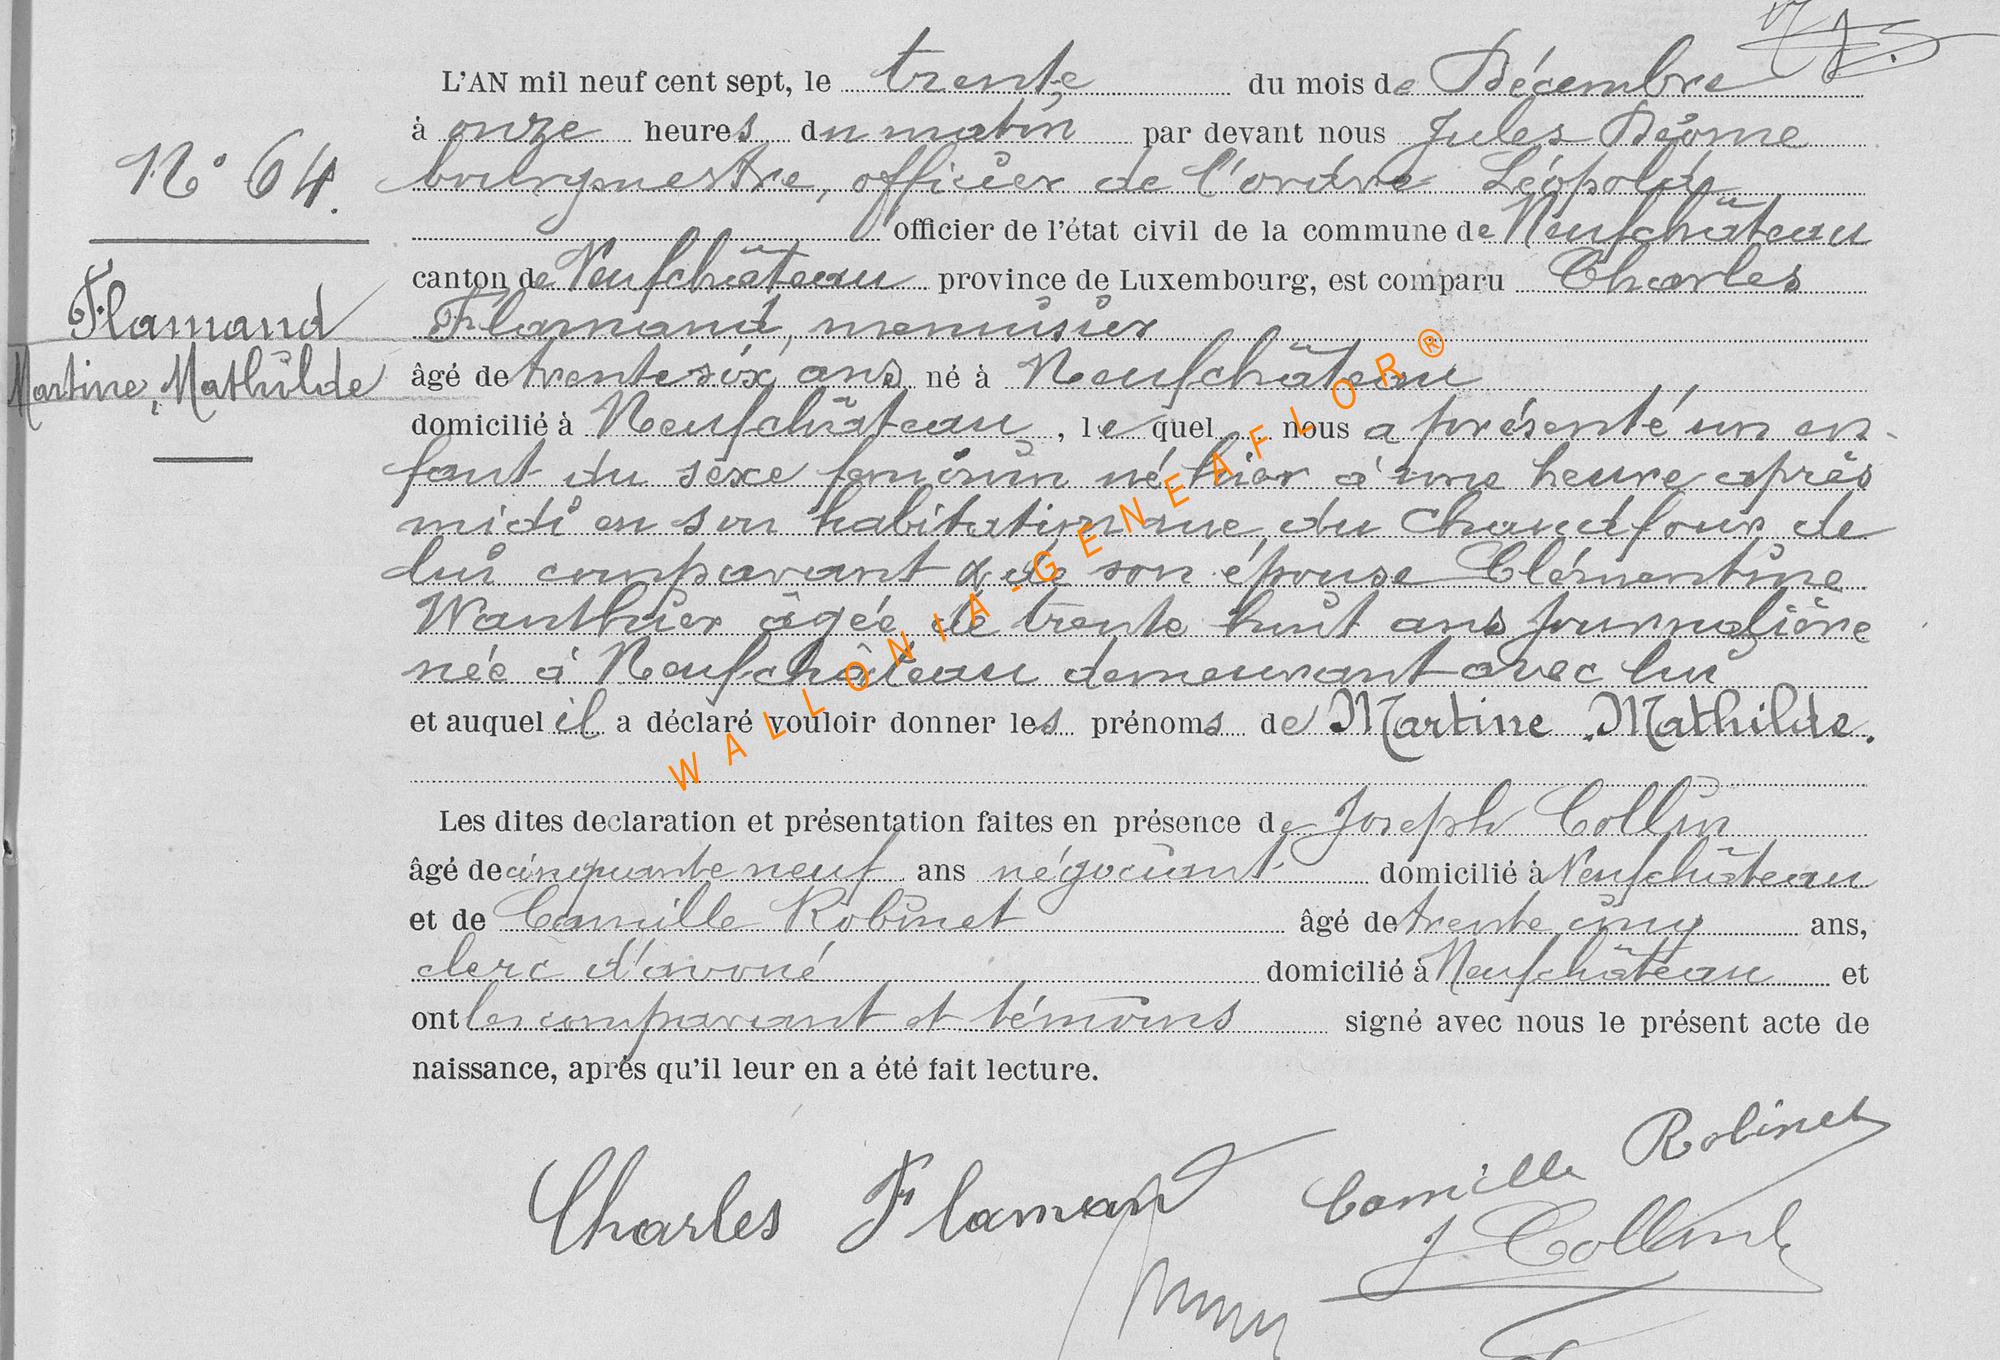 L'AN mil neuf cent sept, le trente du mois de Décembre
à onze heures du matin par devant nous Jules
N° 64. bourgmestre, officier de l'ordre Léopold,
officier de l'état civil de la commune de Neufchâteau
canton de Neufchâteau province de Luxembourg, est comparu Charles
Flamand Flamand, menuisier
Martine, Mathilde âgé de trente six ans né à Neufchâteau
domicilié à Neufchâteau, le quel nous a présenté un en-
fant du sexe féminin né hier à une heure après
midi en son habitation rue du Chaudfour de
lui comparant & de son épouse Clémentine
Wanthier âgée de trente huit ans journalière
née à Neufchâteau demeurant avec lui
et auquel il a déclaré vouloir donner les prénoms de Martine Mathilde.
Les dites declaration et présentation faites en présence de Joseph Collin
âgé de cinquante neuf ans négociant domicilié à Neufchâteau
et de Camille Robinet âgé de trente cinq ans,
clerc d'avoué domicilié à Neufchâteau et
ont les comparant et témoins signé avec nous le présent acte de
naissance, après qu'il leur en a été fait lecture.
Charles Flamand Camille Robinet
J Collin
WALLONIA-GENEAFLOR®